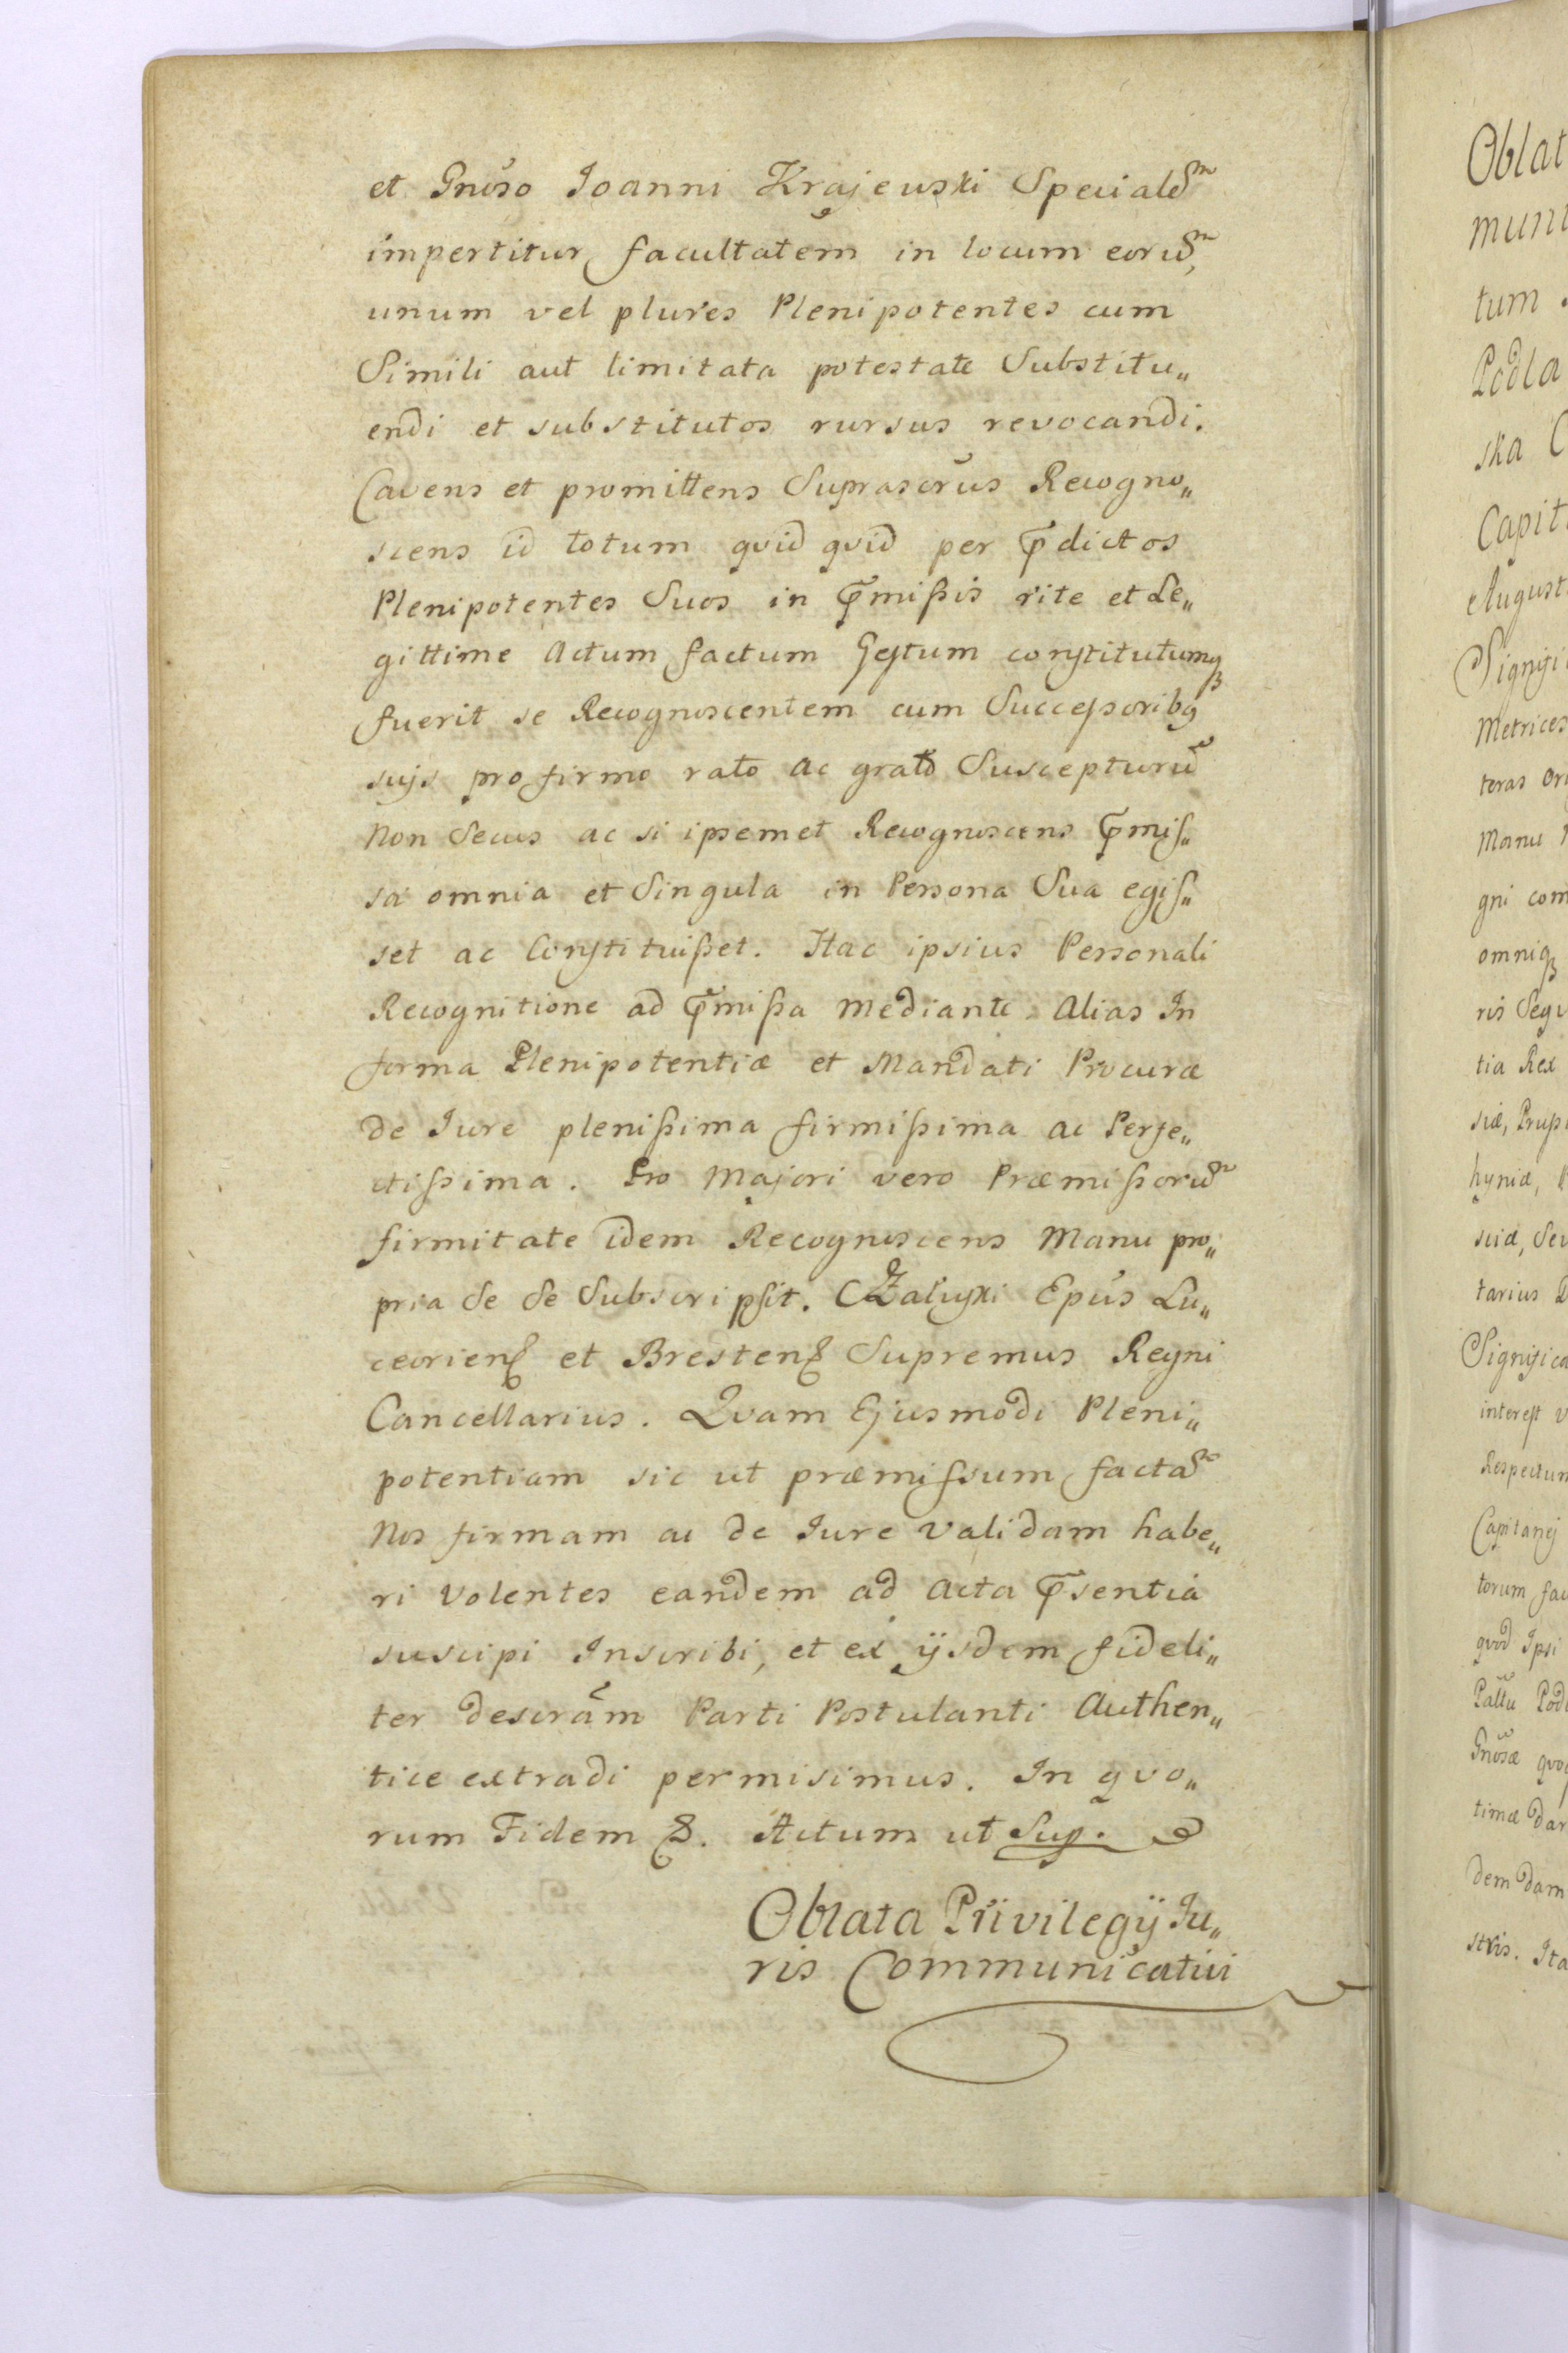 et Gnŏso Joanni Krajewski Specialem
impertitur facultatem in locum eorum,
unum vel plures Plenipotentes cum
Simili aut limitata potestate Substitu„
endi et substitutos rursus revocandi.
Cavens et promittens Suprascrŭs Recogno„
scens id totum qvid qvid per p̄dictos
Plenipotentes Suos in p̄mißis rite et Le„
gittime Actum factum Gestum constitutumq
fuerit se Recognoscentem cum Successoribq
suijs pro firmo rato ac grato Suscepturū
Non Secus ac si ipsemet Recognoscens p̄mis„
sa omnia et Singula in Persona Sua egis„
set ac Constituißet. Hac ipsius Personali
Recognitione ad p̄mißa mediante. Alias In
forma Plenipotentiæ et Mandati Procuræ
de Jure plenißima firmißima ac Perfe„
ctißima. Pro Majori vero Præmißorum
firmitate idem Recognoscens Manu pro„
pria Se Se Subscripsit. Załuski Epŭs Lu„
ceorien et Bresten Supremus Regni
Cancellarius. Qvam Ejusmodi Pleni„
potentiam sic ut præmissum factam
Nos firmam ac de Jure validam habe„
ri Volentes eandem ad Acta p̄sentia
suscipi Inscribi, et ex ijsdem fideli„
ter descrăm Parti Postulanti Authen„
tice extradi permisimus. In qvo„
rum Fidem &. Actum ut Sup.
Oblata Privilegij Ju„
ris Communicativi
Oblat
muni
tum
Podla
ska C
Capit
August
Signifi
Metrices
teras ori
Manu
gni com
omniq
ris Seqv
tia Rex
siæ, Pruß
hyniæ,
sciæ, Sev
tarius D
Significa
interest v
Respectum
Capitanej
torum fac
qvod Ipsi
Pallu Podl
Gnosæ qvoq
timæ dar
dem dam
stris. Ita